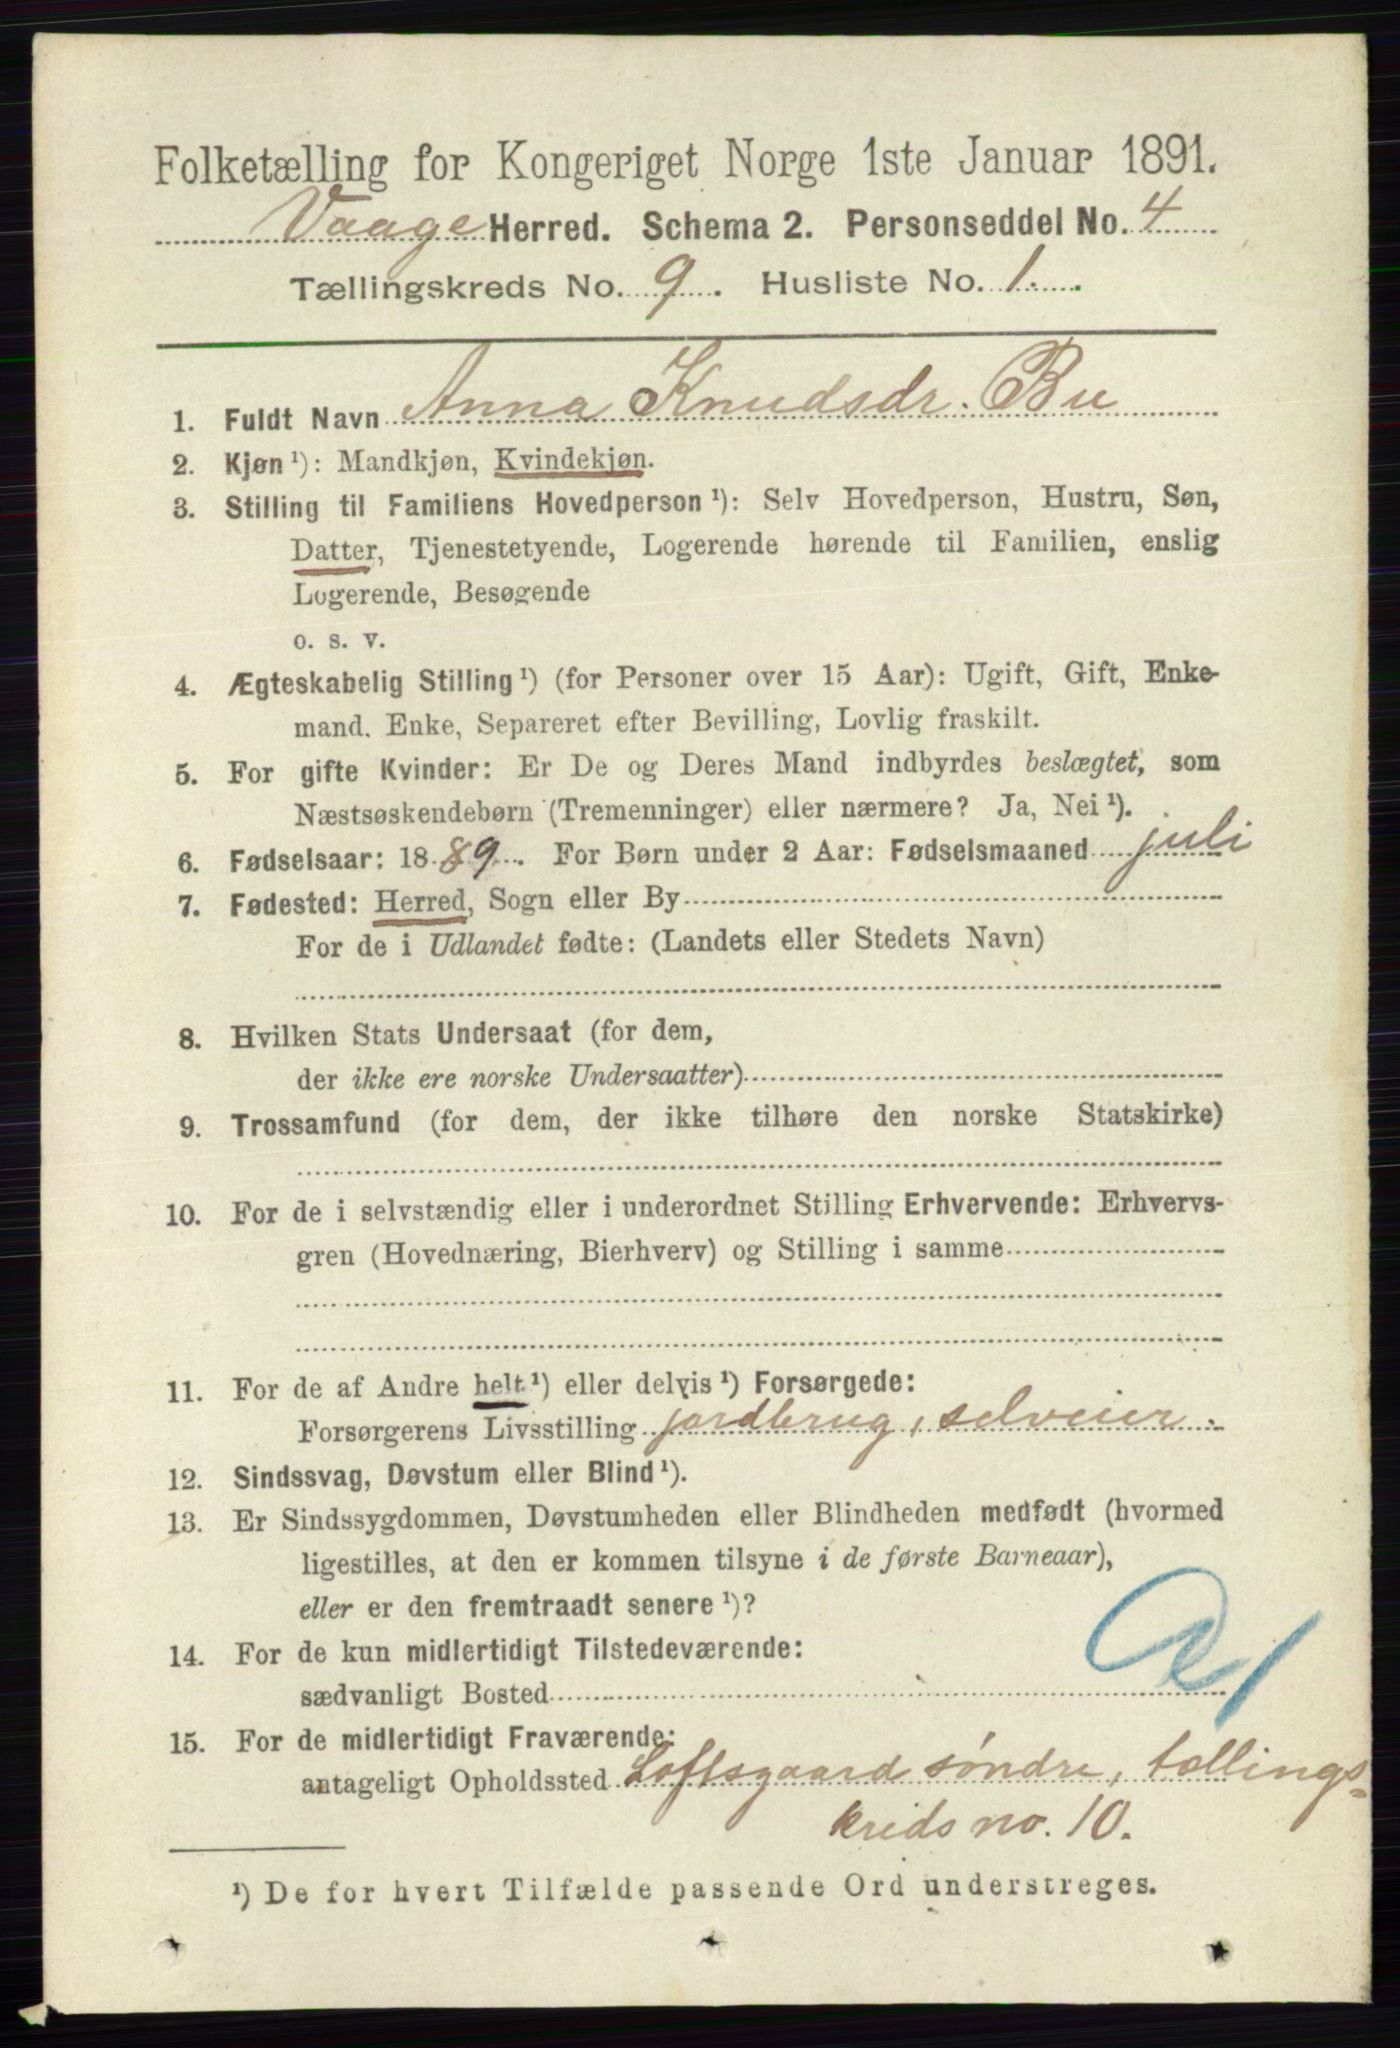 Folketælling for Kongeriget Norge 1ste Januar 1891.
Vaage Herred. Schema 2. Personseddel No. 4
Tællingskreds No. 9. Husliste No. 1.
1. Fuldt Navn Anna Knudsdr. Bu
2. Kjøn ¹): Mandkjøn, Kvindekjøn.
3. Stilling til Familiens Hovedperson ¹): Selv Hovedperson, Hustru, Søn,
Datter, Tjenestetyende, Logerende hørende til Familien, enslig
Logerende, Besøgende
o. s. v.
4. Ægteskabelig Stilling ¹) (for Personer over 15 Aar): Ugift, Gift, Enke-
mand. Enke, Separeret efter Bevilling, Lovlig fraskilt.
5. For gifte Kvinder: Er De og Deres Mand indbyrdes beslægtet, som
Næstsøskendebørn (Tremenninger) eller nærmere? Ja, Nei ¹).
6. Fødselsaar: 1889. For Børn under 2 Aar: Fødselsmaaned juli
7. Fødested: Herred, Sogn eller By
For de i Udlandet fødte: (Landets eller Stedets Navn)
8. Hvilken Stats Undersaat (for dem,
der ikke ere norske Undersaatter)
9. Trossamfund (for dem, der ikke tilhøre den norske Statskirke)
10. For de i selvstændig eller i underordnet Stilling Erhvervende: Erhvervs-
gren (Hovednæring, Bierhverv) og Stilling i samme
11. For de af Andre helt ¹) eller delvis ¹) Forsørgede:
Forsørgerens Livsstilling jordbrug, selveier.
12. Sindssvag, Døvstum eller Blind ¹).
13. Er Sindssygdommen, Døvstumheden eller Blindheden medfødt (hvormed
ligestilles, at den er kommen tilsyne i de første Barneaar),
eller er den fremtraadt senere ¹)?
14. For de kun midlertidigt Tilstedeværende:
sædvanligt Bosted
15. For de midlertidigt Fraværende:
antageligt Opholdssted Loftsgaard søndre, tællings-
kreds no. 10.
¹) De for hvert Tilfælde passende Ord understreges.